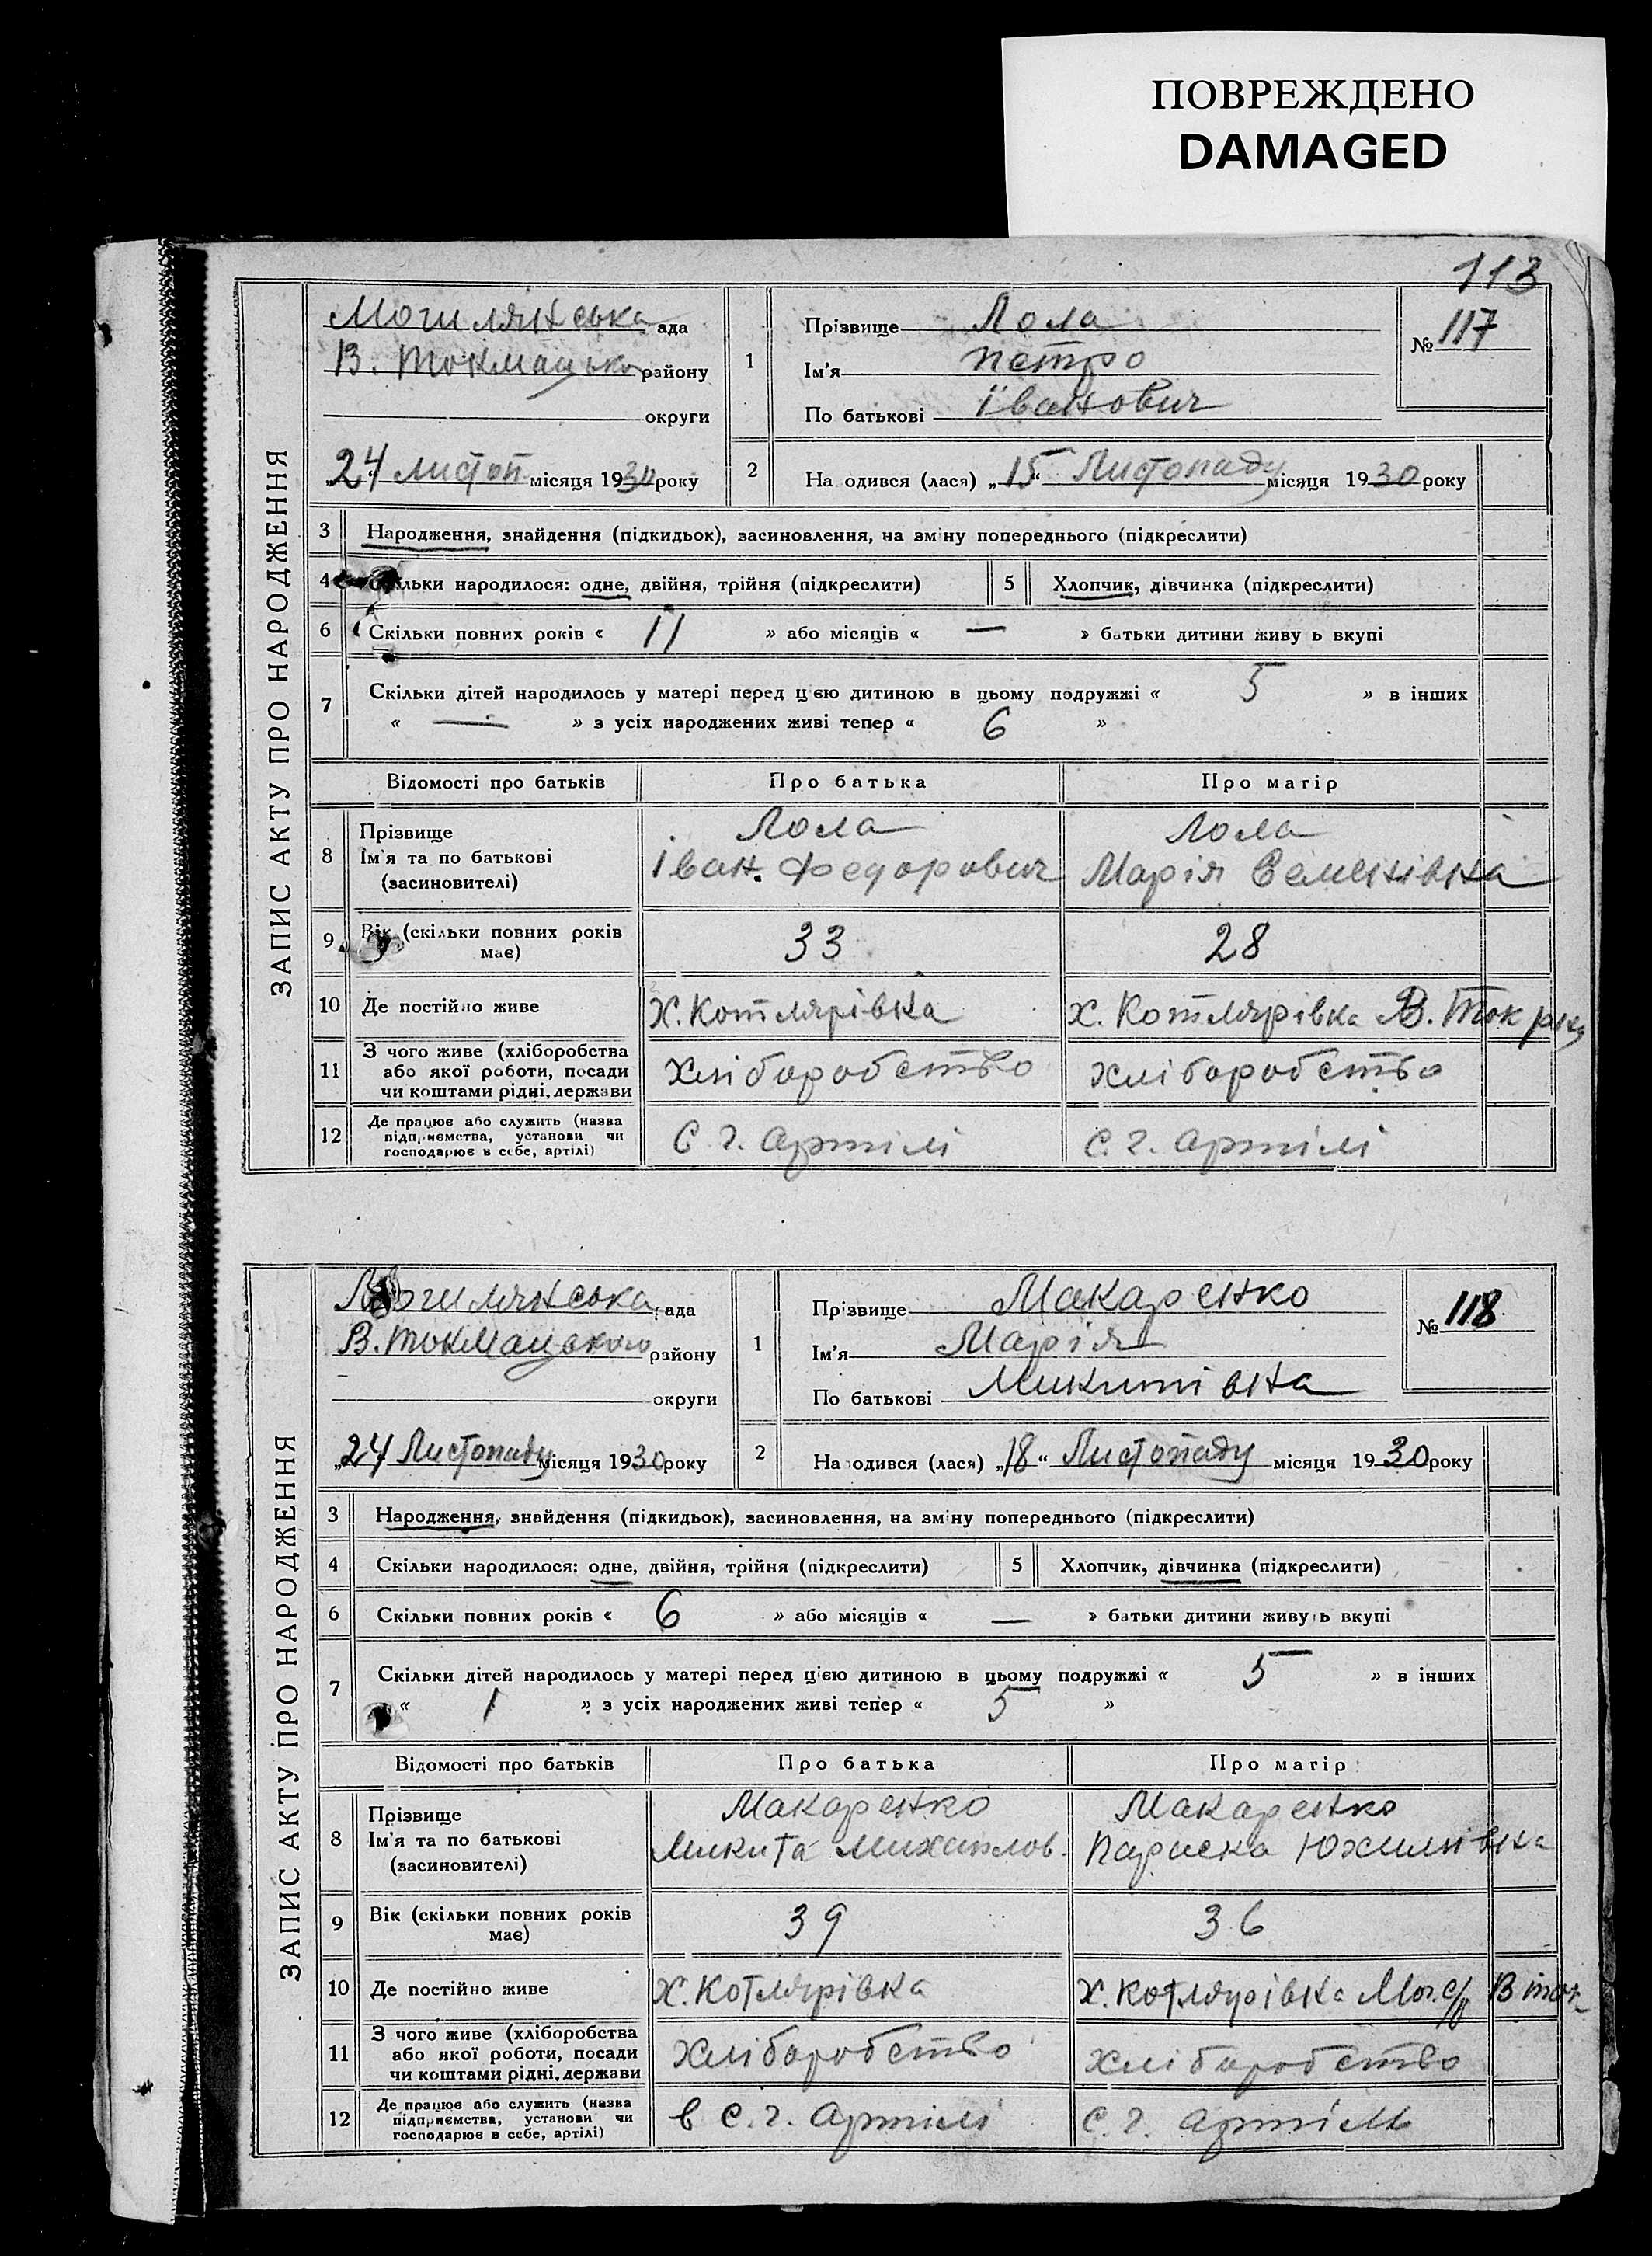 ПОВРЕЖДЕНО
DAMAGED
113
ЗАПИС АКТУ ПРО НАРОДЖЕННЯ
Могилянська ада
В. Токмацько району
округи
24 листоп місяця 1930 року
1
Прізвище Лола
Ім'я Петро
По батькові Іванович
№ 117
2
На одився (лася) „15“ Листопаду місяця 1930 року
3 Народження, знайдення (підкидьок), засиновлення, на зміну попереднього (підкреслити)
4 Скільки народилося: одне, двійня, трійня (підкреслити) 5 Хлопчик, дівчинка (підкреслити)
6 Скільки повних років « 11 » або місяців « — » батьки дитини живу ь вкупі
7 Скільки дітей народилось у матері перед цією дитиною в цьому подружжі « 5 » в інших
« — » з усіх народжених живі тепер « 6 »
Відомості про батьків Про батька Про матір
8 Прізвище Лола Лола
Ім'я та по батькові Іван. Федорович Марія Семенівна
(засиновителі)
9 Вік (скільки повних років 33 28
має)
10 Де постійно живе Х. Котлярівка Х. Котлярівка В. Ток рну
11 З чого живе (хліборобства
або якої роботи, посади Хліборобство хліборобство
чи коштами рідні, держави
12 Де працює або служить (назва
підприємства, установи чи С. г. артілі С. г. артілі
господарює в себе, артілі)
ЗАПИС АКТУ ПРО НАРОДЖЕННЯ
Могилянська рада
В. Токмацького району
округи
„24 Листопаду місяця 1930 року
1
Прізвище Макаренко
Ім'я Марія
По батькові Микитівна
№ 118
2
На одився (лася) „18“ Листопаду місяця 1930 року
3 Народження, знайдення (підкидьок), засиновлення, на зміну попереднього (підкреслити)
4 Скільки народилося: одне, двійня, трійня (підкреслити) 5 Хлопчик, дівчинка (підкреслити)
6 Скільки повних років « 6 » або місяців « — » батьки дитини живуть вкупі
7 Скільки дітей народилось у матері перед цією дитиною в цьому подружжі « 5 » в інших
« 1 » з усіх народжених живі тепер « 5 »
Відомості про батьків Про батька Про матір
8 Прізвище Макаренко Макаренко
Ім'я та по батькові Микита Михайлов. Параска Юхимівна
(засиновителі)
9 Вік (скільки повних років 39 36
має)
10 Де постійно живе Х. Котлярівка Х. Котлярівка Мог. с/р В ток
11 З чого живе (хліборобства
або якої роботи, посади Хліборобство хліборобство
чи коштами рідні, держави
12 Де працює або служить (назва
підприємства, установи чи в с. г. артілі С. г. артіль
господарює в себе, артілі)